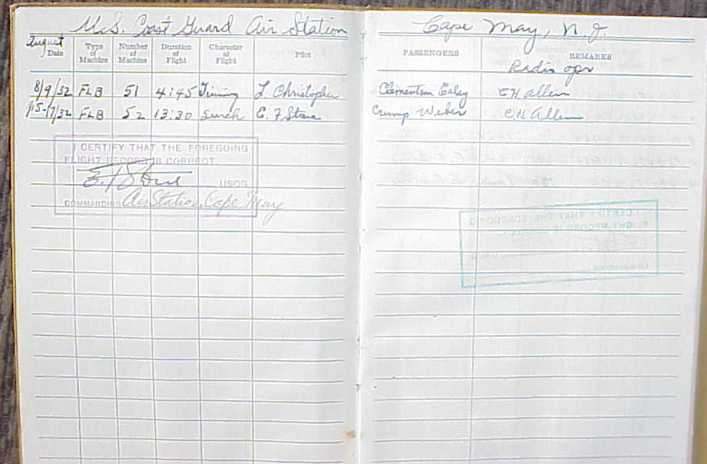 U.S. Coast Guard Air Station Cape May, N.J.
August
Date Type of Machine Number of Machine Duration of Flight Character of Flight Pilot PASSENGERS REMARKS
Radio opr
8/9/32 FLB 51 4:45 Training L. Christopher Clementson Ealey E H Allen
8/15-17/32 FLB 52 13:30 Search E. F. Stone Crump Weber E. H. Allen
I CERTIFY THAT THE FOREGOING
FLIGHT RECORD IS CORRECT
E. F. Stone USCG
COMMANDING Air Station, Cape May